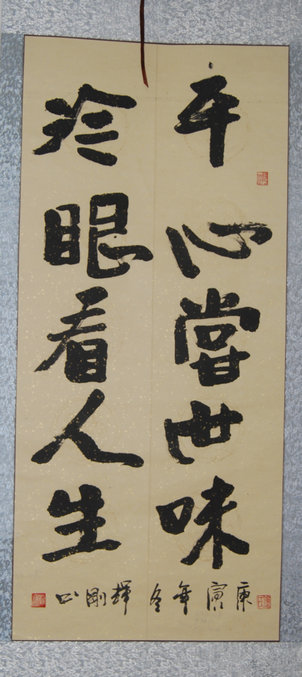 平心嘗世味
冷眼看人生
庚寅年冬輝剛书